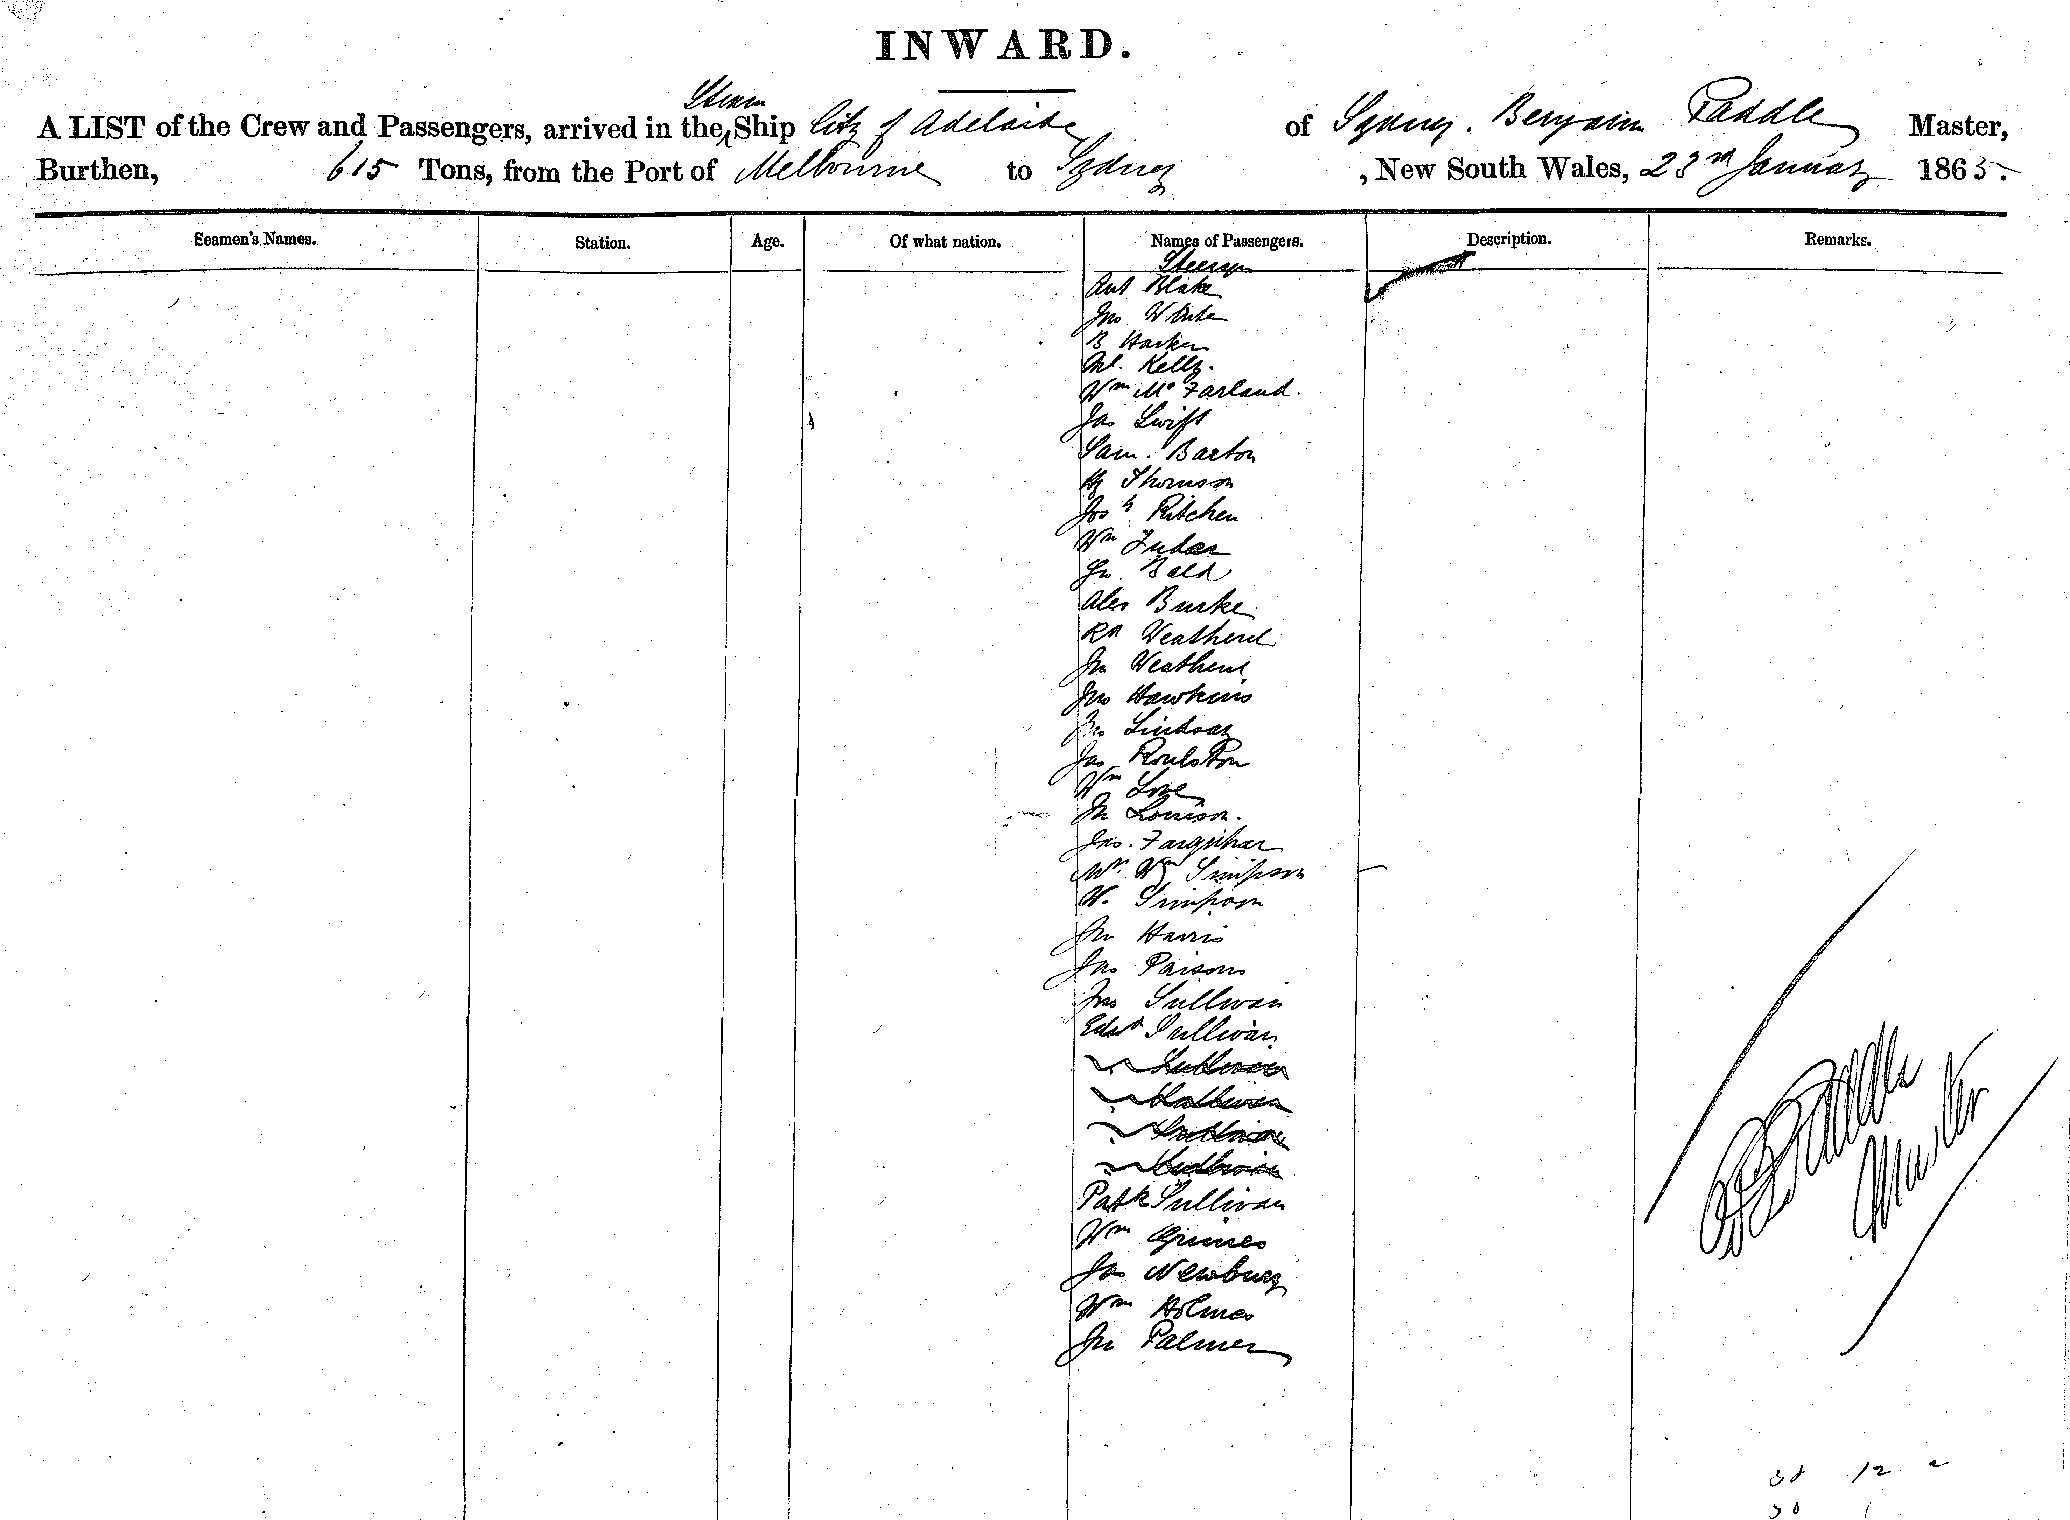 INWARD.
A LIST of the Crew and Passengers, arrived in the Steam Ship City of Adelaide of Sydney. Benjamin Paddle Master,
Burthen, 615 Tons, from the Port of Melbourne to Sydney , New South Wales, 23rd January 1865.
Seamen's Names. Station. Age. Of what nation. Names of Passengers. Description. Remarks.
Steerage
Ant Blake
Jno White
B Harker
Ml. Kelly.
Wm Mc Farland.
Jas Swift
Sam. Barton
Hy Thomson
Josh Ritchen
Wm
Jno. Bald
Alex Burke
Rd Weatherel
Jno Weatherel
Jno Hawkins
Jno Lindsay
Jas Roulston
Wm Love
Jno Louison.
Jas. Farquhar
Mr. Wm Simpson
W. Simpson
Jno Harris
Jas Paisons
Jno Sullivan
Edwd Sullivan
Sullivan
Sullivan
Sullivan
Sullivan
Patk Sullivan
Wm Grimes
Jas Newbury
Wm Holmes
Jno Palmer
B Paddle
Master
12